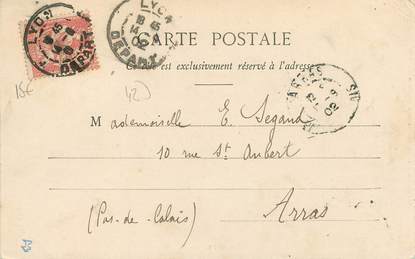 LYON
DEPART
LYON
DEPART
CARTE POSTALE
Ce côté est exclusivement réservé à l'adresse
15€
(42)
Mademoiselle E. Segand
10 rue St Aubert
(Pas-de-Calais) Arras